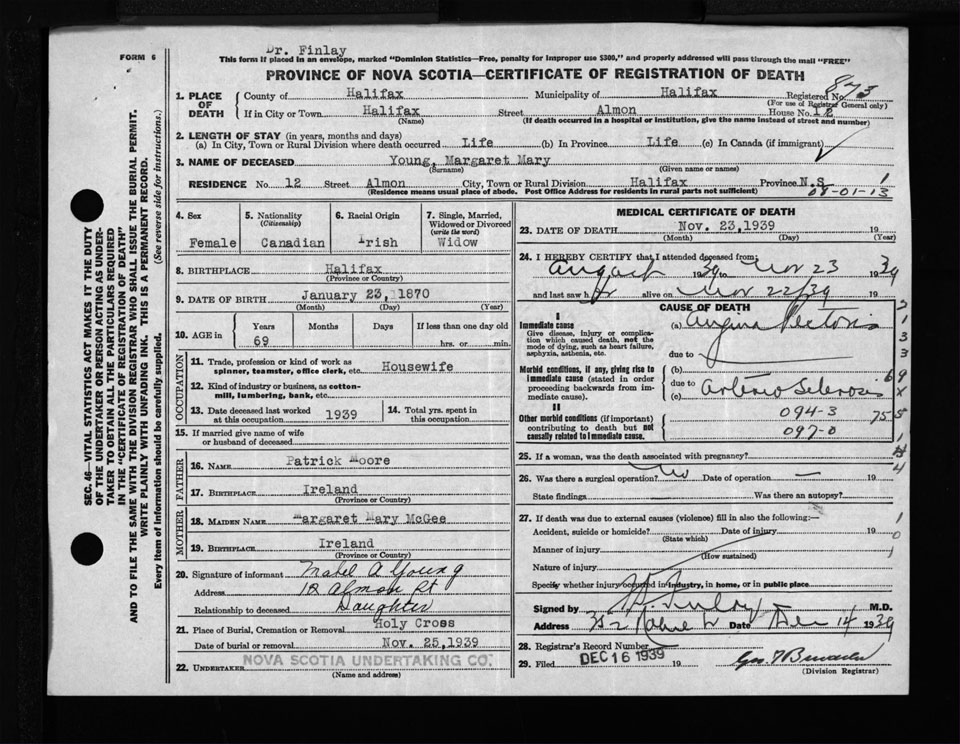 FORM 6
Dr. Finlay
This form if placed in an envelope, marked "Dominion Statistics—Free, penalty for improper use $300," and properly addressed will pass through the mail "FREE"
PROVINCE OF NOVA SCOTIA—CERTIFICATE OF REGISTRATION OF DEATH
873
1. PLACE OF DEATH
County of Halifax Municipality of Halifax Registered No.
(For use of Registrar General only)
If in City or Town Halifax Street Almon House No. 12
(Name) (If death occurred in a hospital or institution, give the name instead of street and number)
2. LENGTH OF STAY (in years, months and days)
(a) In City, Town or Rural Division where death occurred Life (b) In Province Life (c) In Canada (if immigrant)
3. NAME OF DECEASED Young, Margaret Mary
(Surname) (Given name or names)
RESIDENCE No. 12 Street Almon City, Town or Rural Division Halifax Province N.S. 1
(Residence means usual place of abode. Post Office Address for residents in rural parts not sufficient) 08-01-13
4. Sex
Female
5. Nationality
(Citizenship)
Canadian
6. Racial Origin
Irish
7. Single, Married, Widowed or Divorced
(write the word)
Widow
8. BIRTHPLACE Halifax
(Province or Country)
9. DATE OF BIRTH January 23, 1870
(Month) (Day) (Year)
10. AGE IN
Years Months Days If less than one day old
69 hrs. or min.
OCCUPATION
11. Trade, profession or kind of work as
spinner, teamster, office clerk, etc. Housewife
12. Kind of industry or business, as cotton-
mill, lumbering, bank, etc.
13. Date deceased last worked
at this occupation 1939
14. Total yrs. spent in
this occupation
15. If married give name of wife
or husband of deceased
FATHER
16. NAME Patrick Moore
17. BIRTHPLACE Ireland
(Province or Country)
MOTHER
18. MAIDEN NAME Margaret Mary McGee
19. BIRTHPLACE Ireland
(Province or Country)
20. Signature of informant Mabel A Young
Address 12 Almon St
Relationship to deceased Daughter
21. Place of Burial, Cremation or Removal Holy Cross
Date of burial or removal Nov. 25, 1939
22. UNDERTAKER NOVA SCOTIA UNDERTAKING CO.
(Name and address)
MEDICAL CERTIFICATE OF DEATH
23. DATE OF DEATH Nov. 23, 1939 19
(Month) (Day) (Year)
24. I HEREBY CERTIFY that I attended deceased from:
August 1939 to Nov 23 1939
and last saw h alive on Nov 22/39 19
CAUSE OF DEATH
I
Immediate cause
Give disease, injury or complica-
tion which caused death, not the
mode of dying, such as heart failure,
asphyxia, asthenia, etc.
(a) Angina Pectoris
due to
Morbid conditions, if any, giving rise to
immediate cause (stated in order
proceeding backwards from im-
mediate cause).
(b)
due to
(c) Arterio Sclerosis
II
Other morbid conditions (if important)
contributing to death but not
causally related to immediate cause.
094-3
097-0
25. If a woman, was the death associated with pregnancy?
26. Was there a surgical operation? No Date of operation
State findings Was there an autopsy?
27. If death was due to external causes (violence) fill in also the following:—
Accident, suicide or homicide? Date of injury 19
(State which)
Manner of injury
(How sustained)
Nature of injury
Specify whether injury occurred in industry, in home, or in public place
Signed by Finlay M.D.
Address Date Dec 14 1939
28. Registrar's Record Number
29. Filed DEC 16 1939 19
(Division Registrar)
SEC. 46—VITAL STATISTICS ACT MAKES IT THE DUTY
OF THE UNDERTAKER OR PERSON ACTING AS UNDER-
TAKER TO OBTAIN ALL THE PARTICULARS REQUIRED
IN THE "CERTIFICATE OF REGISTRATION OF DEATH"
AND TO FILE THE SAME WITH THE DIVISION REGISTRAR WHO SHALL ISSUE THE BURIAL PERMIT.
WRITE PLAINLY WITH UNFADING INK. THIS IS A PERMANENT RECORD.
Every item of information should be carefully supplied. (See reverse side for instructions.)